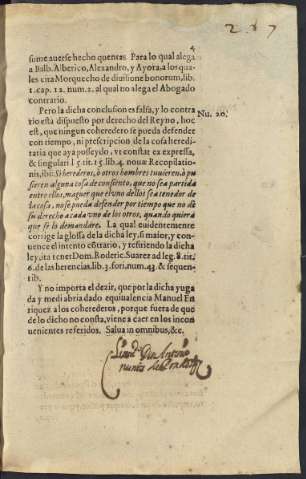 267
4
sume auerse hecho quentas. Para lo qual alega
a Balb. Alberico, Alexandro, y Ayora, a los qua
les cita Morquecho de diuisione bonorum, lib.
1. cap. 12. num. 2. al qual no alega el Abogado
contrario.
Pero la dicha conclusion es falsa, y lo contra
rio està dispuesto por derecho del Reyno, hoc
est, que ningun coheredero se pueda defender
con tiempo, ni prescripcion de la cosa heredi-
taria que aya posseydo, vt constat ex expressa,
& singulari l. 5. tit. 15. lib. 4. nouæ Recopilatio-
nis, ibi: Si herederos, ò otros hombres tuuieren, ò pu
sieren alguna cosa de consento, que no sea partida
entre ellos, maguer que el vno dellos sea tenedor de
la cosa, no se pueda defender por tiempo que no dè
su derecho a cada vno de los otros, quando quiera
que se lo demandare. La qual euidentemente
corrige la glossa de la dicha ley, si maior, y con
uence el intento cõtrario, y refiriendo la dicha
ley, ita tenet Dom. Roderic. Suarez ad leg. 8. tit.
6. de las herencias, lib. 3. fori, num. 43. & sequen-
tib.
Y no importa el dezir, que por la dicha yuga
da y media bria dado equiualencia Manuel En
riquez a los coherederos, porque fuera de que
de lo dicho no consta, viene a caer en los incon
uenientes referidos. Salua in omnibus, &c.
Nu. 20.
Licend.do Don Antonio
nunez de